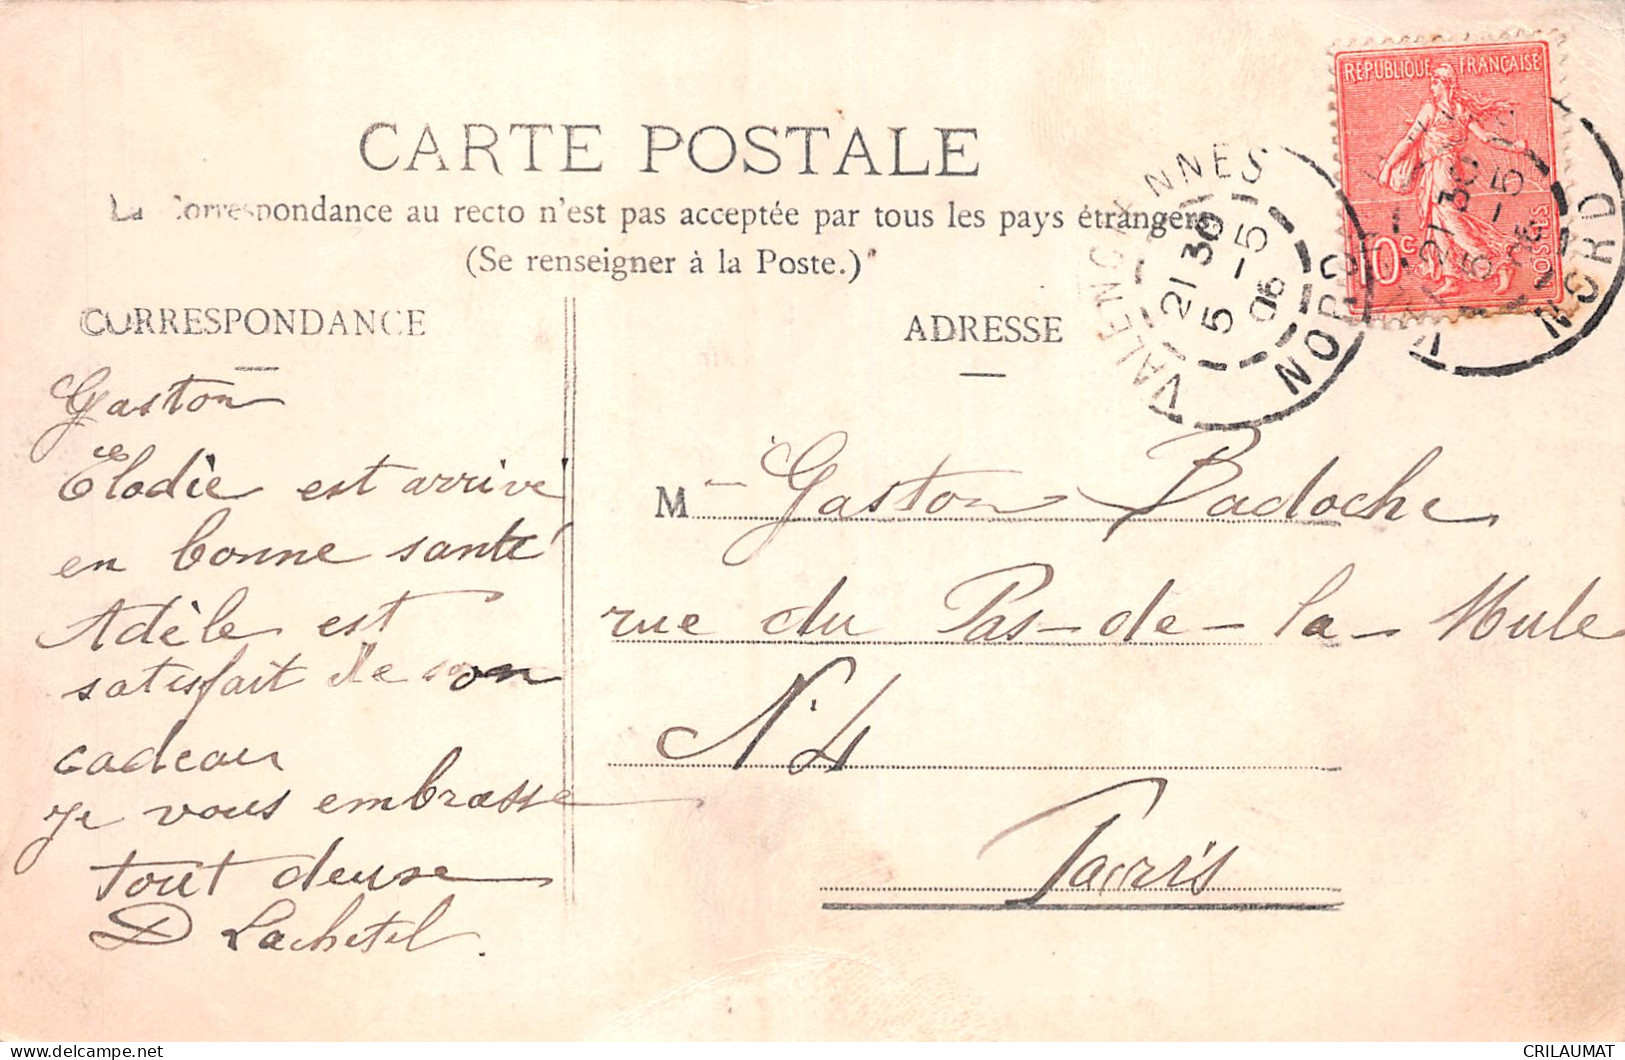 CARTE POSTALE
La Correspondance au recto n'est pas acceptée par tous les pays étrangers
(Se renseigner à la Poste.)
CORRESPONDANCE
Gaston
Elodie est arrive
en bonne santé
Adèle est
satisfait de son
cadeau
Je vous embrasse
tout deuse
D Lachetel.
ADRESSE
M Gaston Badoche
rue du Pas-de-la-Mule
N° 4
Paris
REPUBLIQUE FRANÇAISE
10c
POSTES
VALENCIENNES
21 30
5 -5
06
NORD
21 30
5 -5
06
NORD
CRILAUMAT